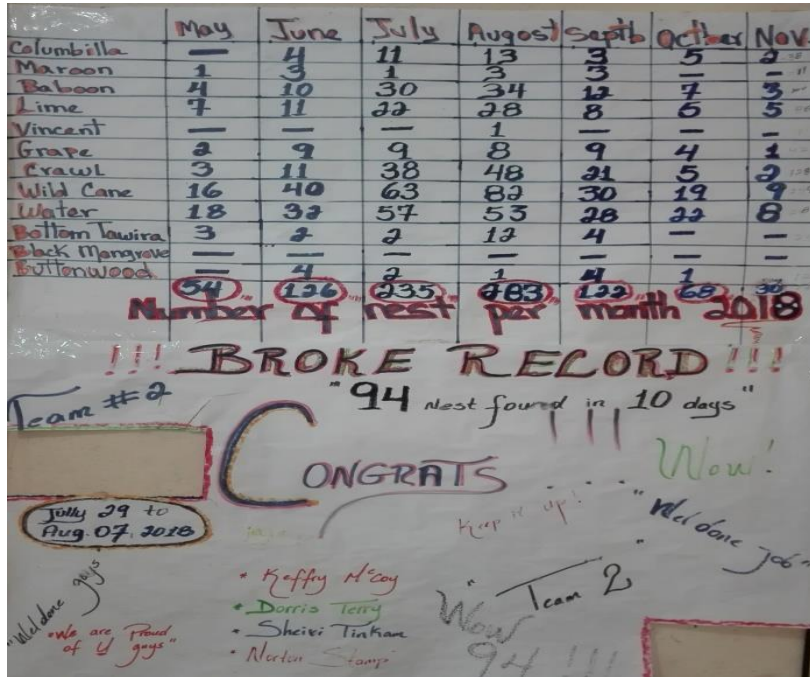 May June July Augost Septb Octber Nov.
Columbilla — 4 11 13 3 5 2
Maroon 1 3 1 3 3 — —
Baboon 4 10 30 34 12 7 3
Lime 7 11 22 28 8 5 5
Vincent — — — 1 — — —
Grape 2 9 9 8 9 4 1
Crawl 3 11 38 48 21 5 2
Wild Cane 16 40 63 82 30 19 9
Water 18 32 57 53 28 22 8
Bottom Tawira 3 2 2 12 4 — —
Black Mangrove — — — — — — —
Buttonwood — 4 2 1 4 1
54 126 235 283 122 68 30
Number of nest per month 2018
!!! BROKE RECORD !!!
Team #2
"94 Nest found in 10 days"
!!!
CONGRATS
Wow!
Jully 29 to
Aug. 07, 2018
Keep it up!
"Wel done job"
"Weldone guys"
"We are Proud
of U guys"
* Keffry McCoy
* Dorris Terry
* Sheiri Tinkam
* Norton Stamp
"Team 2"
Wow
94 !!!